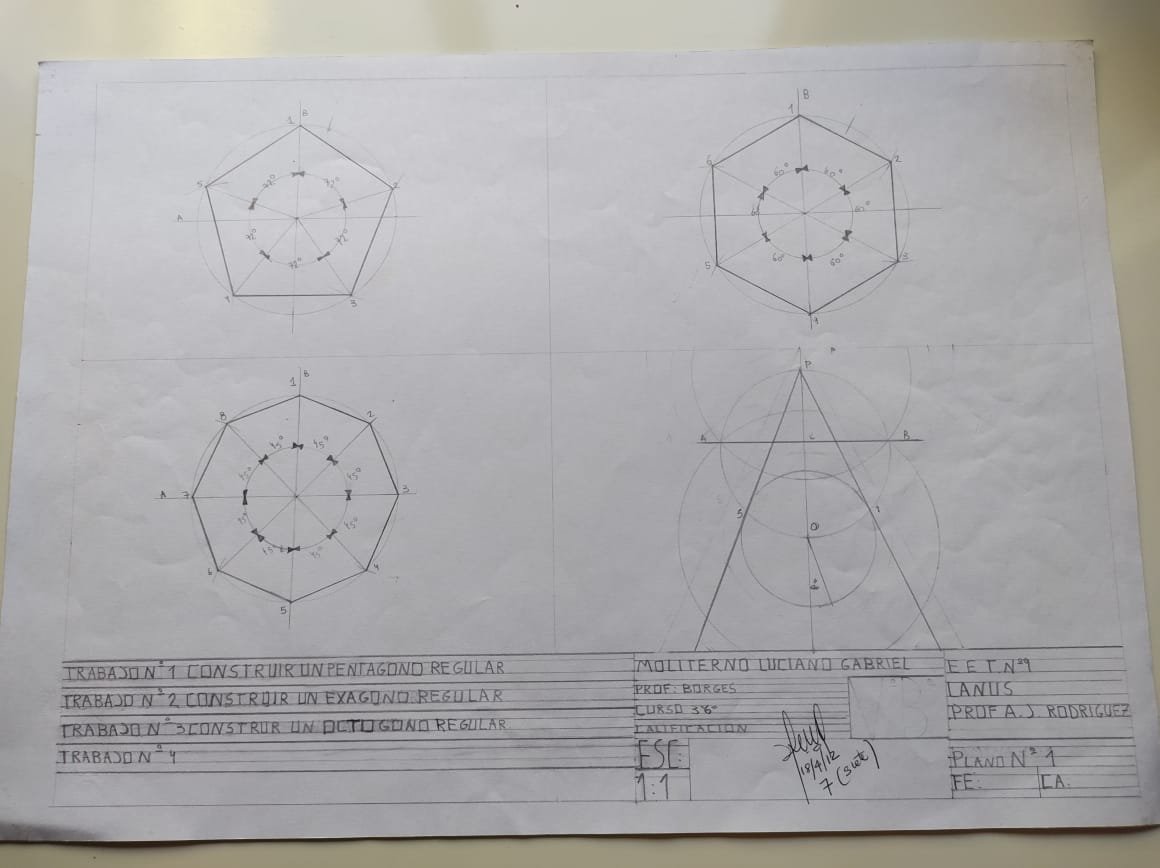 1 B
5 2
A
72° 72°
72° 72°
72°
4 3
B
1
6 2
60° 60°
60° 60°
60° 60°
5 3
4
1 B
8 2
45° 45°
45° 45°
A 7 3
45° 45°
45° 45°
6 4
5
P A
A C B
S
O
TRABAJO Nº 1 CONSTRUIR UN PENTAGONO REGULAR
TRABAJO Nº 2 CONSTRUIR UN EXAGONO REGULAR
TRABAJO Nº 3 CONSTRUR UN OCTOGONO REGULAR
TRABAJO Nº 4
MOLITERNO LUCIANO GABRIEL
PROF: BORGES
CURSO 3º6º
CALIFICACION
ESC:
1:1
18/4/12
7 (siete)
E E T Nº9
LANUS
PROF A. J. RODRIGUEZ
PLANO Nº 1
FE: CA: